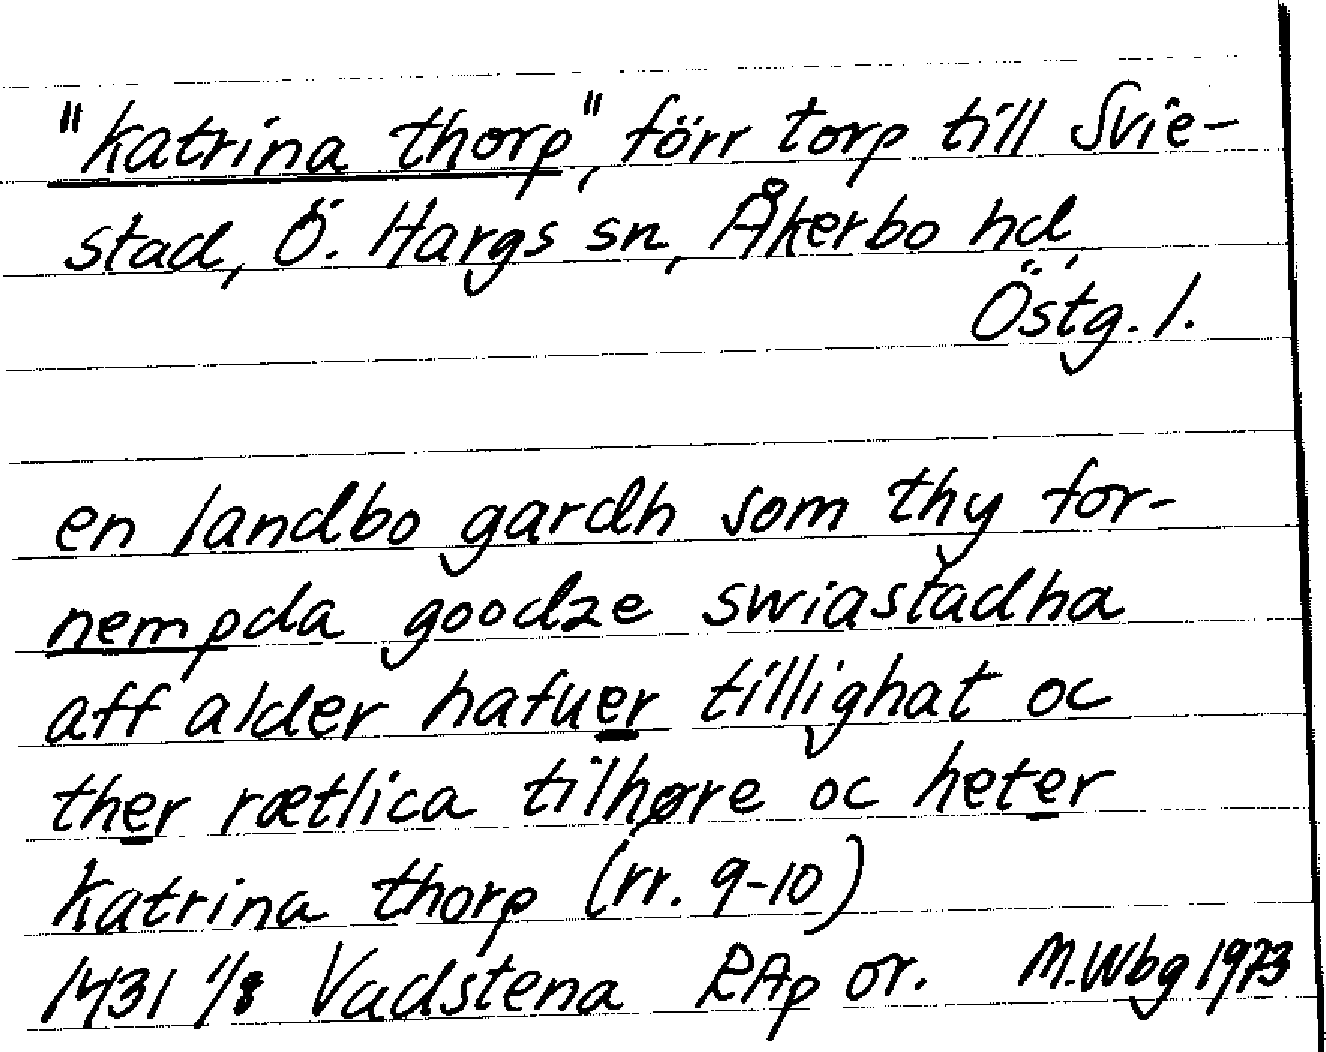 "katrina thorp", förr torp till Svie-
stad, Ö. Hargs sn, Åkerbo hd,
Östg. l.
en landbo gardh som thy for-
nempda goodze swiastadha
aff alder hafuer tillighat oc
ther rætlica tilhøre oc heter
katrina thorp (rr. 9-10)
1431 1/8 Vadstena RAp or. M.Wbg 1973